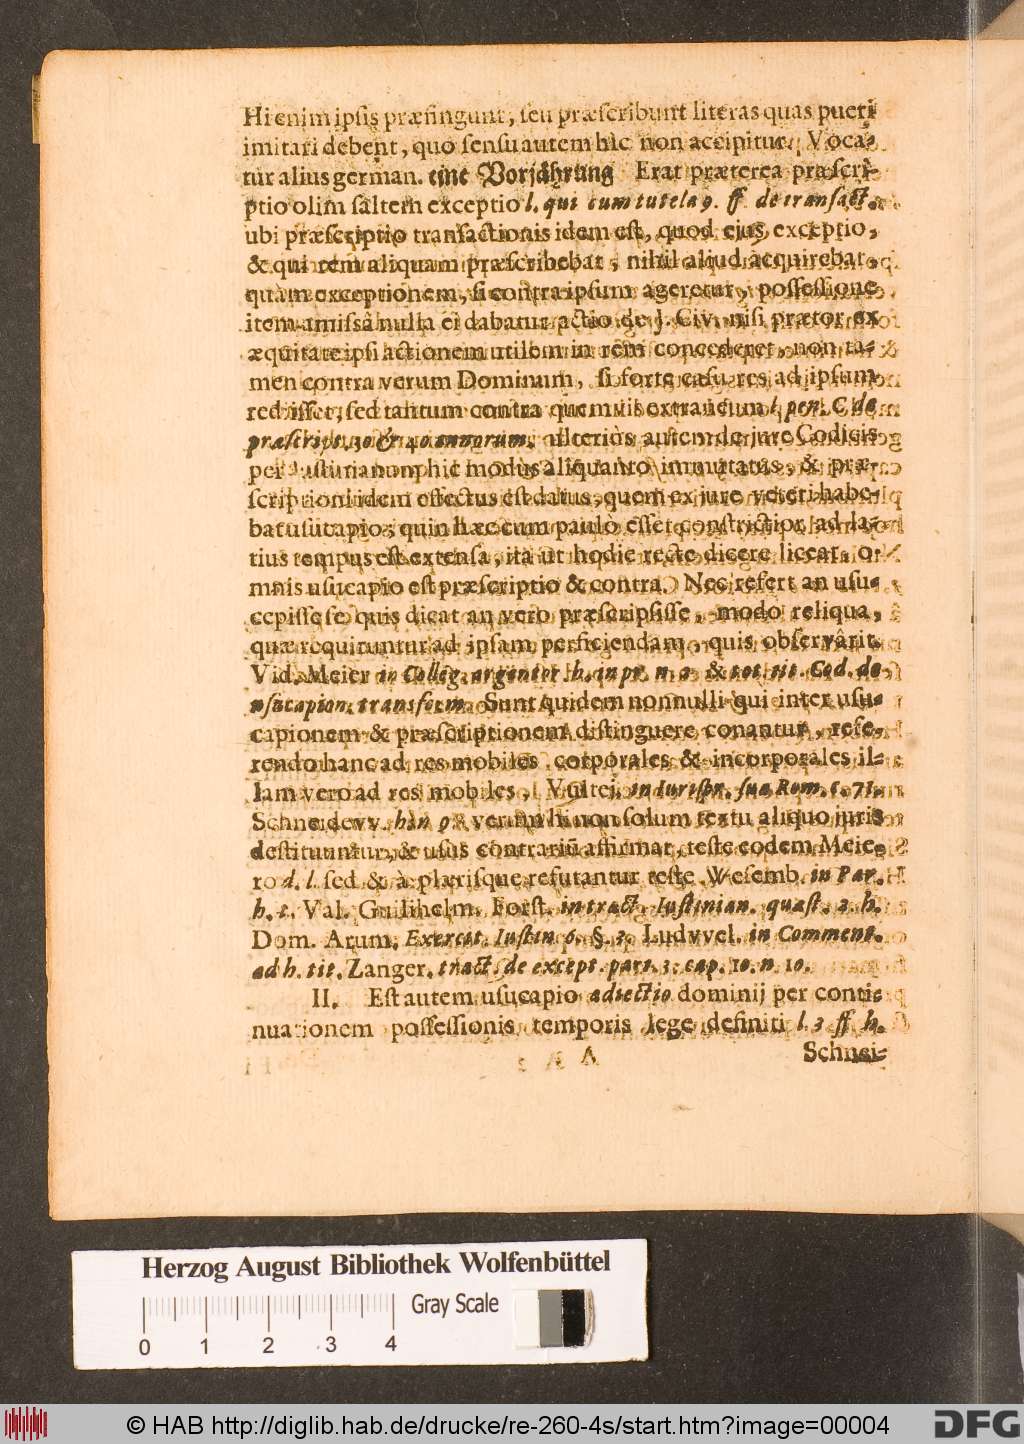 Hi enim ipsis præfingunt, seu præscribunt literas quas pueri
imitari debent, quo sensu autem hîc non accipitur. Voca-
tur alius german. eine Vorjährung Erat præterea præscri-
ptio olim saltem exceptio l. qui cum tutela 9. ff. de transact.
ubi præscriptio transactionis idem est, quod ejus exceptio,
& qui rem aliquam præscribebat, nihil aliud acquirebat,
quàm exceptionem, si contra ipsum ageretur, possessione
item amissâ nulla ei dabatur actio de J. Civ. nisi prætor ex
æquitate ipsi actionem utilem in rem concederet, non ta-
men contra verum Dominum, si forte casu res ad ipsum
rediisset, sed tantum contra quemvis extraneum l. pen. C. de
præscript. 30 & 40 annorum. ulterius autem de jure Codicis
per Justinianum hic modus aliquanto immutatus, & præ-
scriptioni idem effectus est datus, quem ex jure veteri habe-
bat usucapio; quin hæc cum paulò esset constrictior ad la-
tius tempus est extensa, ita ut hodie recte dicere liceat, o-
mnis usucapio est præscriptio & contra. Nec refert an usu-
cepisse se quis dicat an vero præscripsisse, modo reliqua,
quæ requiruntur ad ipsam perficiendam, quis observârit.
Vid. Meier in Colleg. argentor h. in pr. n. 2. & tot. tit. Cod. de
usucapion. transform. Sunt quidem nonnulli qui inter usu-
capionem & præscriptionem distinguere conantur, refe-
rendo hanc ad res mobiles corporales & incorporales il-
lam vero ad res mobiles, Vultej. in Iurispr. sua Rom. c. 71.
Schneidevv. hîn 9. verùm hi non solum textu aliquo juris
destituuntur, & usus contrariũ affirmat, teste eodem Meie-
ro d. l. sed & à plærisque refutantur teste Wesemb. in Par.
h. t. Val. Guilihelm. Forst. in tract. Iustinian. quæst. 2. h.
Dom. Arum. Exercit. Iustin 6. §. 3. Ludvvel. in Comment.
ad h. tit. Zanger. tract. de except. part. 3. cap. 10. n. 10.
II. Est autem usucapio adiectio dominij per conti-
nuationem possessionis temporis lege definiti l. 3 ff h.
Schnei-
Herzog August Bibliothek Wolfenbüttel
Gray Scale
0 1 2 3 4
© HAB http://diglib.hab.de/drucke/re-260-4s/start.htm?image=00004
DFG